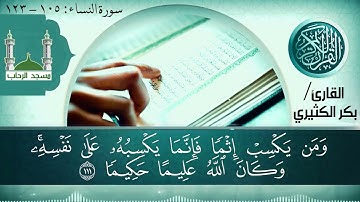 سورة النساء: ١٠٥ - ١٢٣
مسجد الرحاب
القرآن الكريم
القارئ/
بكر الكثيري
وَمَن يَكْسِبْ إِثْمًا فَإِنَّمَا يَكْسِبُهُۥ عَلَىٰ نَفْسِهِۦۚ
وَكَانَ ٱللَّهُ عَلِيمًا حَكِيمًا ١١١